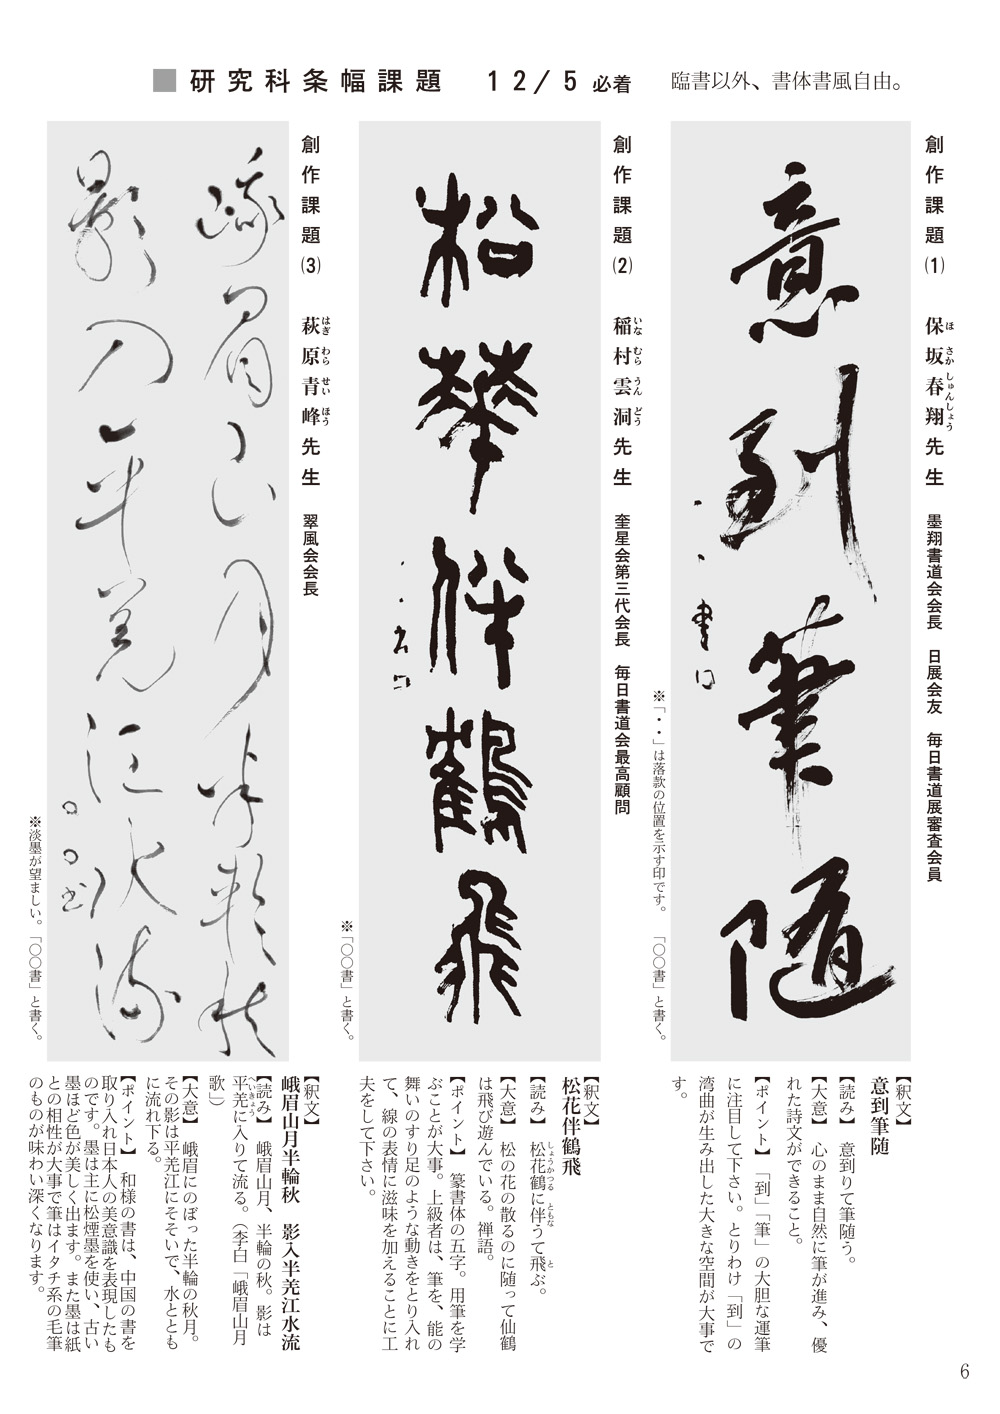 ■研究科条幅課題　12/5必着　臨書以外、書体書風自由。
創作課題(1)　保坂春翔先生　墨翔書道会会長　日展会友　毎日書道展審査会員
ほ さか しゅんしょう
意到筆随
・・書口
※「・・」は落款の位置を示す印です。　「〇〇書」と書く。
【釈文】
意到筆随
【読み】　意到りて筆随う。
【大意】　心のまま自然に筆が進み、優
れた詩文ができること。
【ポイント】　「到」「筆」の大胆な運筆
に注目して下さい。とりわけ「到」の
湾曲が生み出した大きな空間が大事で
す。
創作課題(2)　稲村雲洞先生　奎星会第三代会長　毎日書道会最高顧問
いな むら うん どう
松華伴鶴飛
※「〇〇書」と書く。
【釈文】
松花伴鶴飛
【読み】　松花鶴に伴うて飛ぶ。
しょうかつる ともな と
【大意】　松の花の散るのに随って仙鶴
は飛び遊んでいる。禅語。
【ポイント】　篆書体の五字。用筆を学
ぶことが大事。上級者は、筆を、能の
舞いのすり足のような動きをとり入れ
て、線の表情に滋味を加えることに工
夫をして下さい。
創作課題(3)　萩原青峰先生　翠風会会長
はぎ わら せい ほう
峨眉山月半輪秋
影入平羌江水流
〇〇書
※淡墨が望ましい。　「〇〇書」と書く。
【釈文】
峨眉山月半輪秋　影入半羌江水流
【読み】　峨眉山月、半輪の秋。影は
平羌に入りて流る。（李白「峨眉山月
へいきょう
歌」）
【大意】　峨眉にのぼった半輪の秋月。
その影は平羌江にそそいで、水ととも
に流れ下る。
【ポイント】　和様の書は、中国の書を
取り入れ日本人の美意識を表現したも
のです。墨は主に松煙墨を使い、古い
墨ほど色が美しく出ます。また墨は紙
との相性が大事で筆はイタチ系の毛筆
のものが味わい深くなります。
6